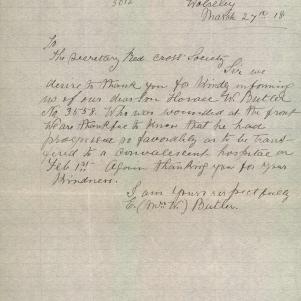 3012
Wolseley
March 27th 18
To
The Secretary Red Cross Society
Sir we
desire to thank you for kindly informing
us of our dear son Horace W. Butler
No 3558. Who was wounded at the front
We are thankful to know that he had
progressed so favorably as to be trans-
fered to a convalescent hospital on
Feb 1st. Again thanking you for your
Kindness.
I am Yours respectfully
E. (Mrs W.) Butler.